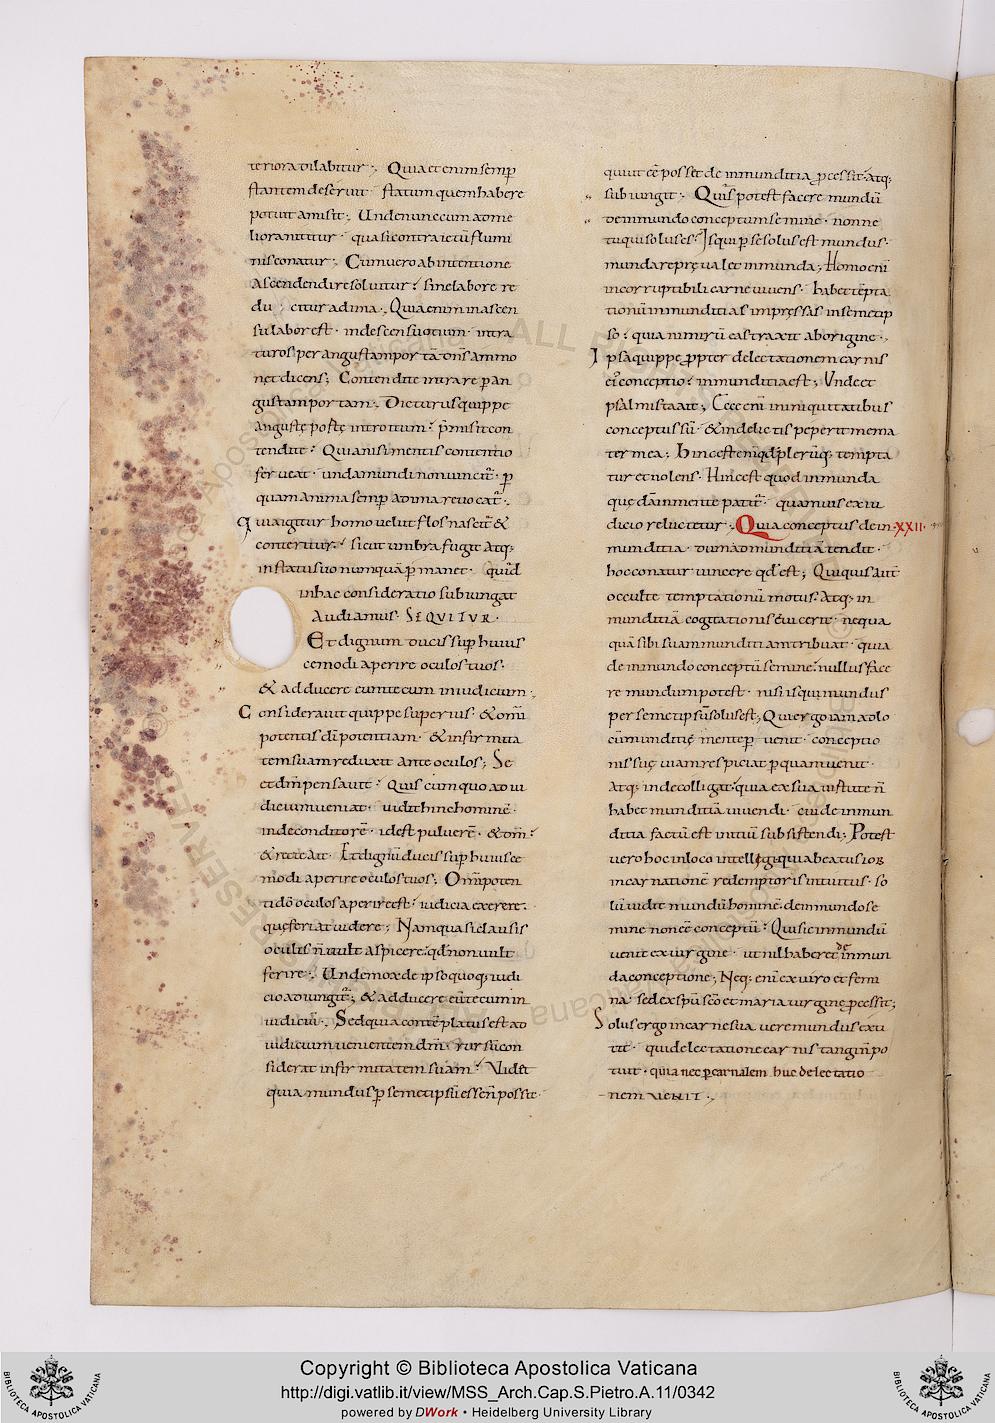 teriora dilabitur ·, Quia et enim semp̄
stantem deseruit · statum quem habere
potuit amisit ·, Unde nunc cum ad me
liora nititur · quasi contra ictū flumi
nis conatur ·, Cum uero ab intentione
ascendendi resoluitur · sine labore re
du citur ad ima ·, Quia enim in ascen
su labor est · in descensu otium · intra
turos per angustam portam dn̄s ammo
net dicens ; Contendite intrare p an
gustam portam ·, Dicturus quippe
angustę portę introitum · p̄misit con
tendite · Quia nisi mentis contentio
ferueat · unda mundi non uincit̄ · p
quam anima semp̄ ad ima reuocat̄ ·,
Quia igitur homo uelut flos nascit̄ &
conteritur · sicut umbra fugit atq;
in statu suo numquā p manet · quid
in hac consideratio subiungat
audiamus · SEQUITUR ·
Et dignum ducis sup huius
cemodi aperire oculos tuos ·
& adducere eum tecum in iudicium ·,
Considerauit quippe superius · & omni
potentis dī potentiam · & infirmita
tem suam reduxit ante oculos ; Se
et dm̄ pensauit · Quis cum quo ad iu
dicium ueniat · uidit hinc hominē ·
inde conditorē · id est puluerē · & dm̄ ·
& recte ait · Et dignū ducis sup huiusce
modi aperire oculos tuos ; Omīpoten
ti dō oculos aperire est · iudicia exerere ·
quę feriat uidere ; Nam quasi clausis
oculis n̄ uult aspicere · qd̄ non uult
ferire · Unde mox de ipso quoq; iudi
cio adiungit̄ ; & adducere eū tecum in
iudiciū ·, Sed quia contēplatus est ad
iudicium uenientem dm̄ · rursū con
siderat infirmitatem suam · Videt
quia mundus p semetipsū esse n̄ posset ·
qui ut eē posset de inmunditia pcessit · atq;
subiungit ·, Quis potest facere mundū
de inmundo conceptum semine · nonne
tu qui solus es · Is qui p se solus est mundus ·
mundare pręualet inmunda ; Homo enī
incorruptibili carne uiuens · habet tēpta
tionū inmunditias impręssas in semetip
so · quia nimirū eas traxit ab origine ·,
Ipsa quippe ppter delectationem carnis
ei' conceptio · inmunditia est ; Unde et
psalmista ait ; Ecce enī in iniquitatibus
conceptus sū · & in delictis peperit me ma
ter mea ; Hinc est enī qd̄ plerūq; tempta
tur et nolens · Hinc est quod inmunda
quę dā in mente patit̄ · quamuis ex iu
dicio reluctetur ·, Quia conceptus de in ·XXII·
munditia · dum ad munditiā tendit ·
hoc conatur uincere qd̄ est ; Quisquis aūt
occulte temptationū motus · atq; in
munditiā cogitationis euicerit · nequa
quā sibi suam munditiam tribuat · quia
de inmundo conceptū semine · nullus face
re mundum potest · nisi is qui mundus
per semetipsū solus est ; Qui ergo iam ad lo
cū munditię mente p uenit · conceptio
nis suę uiam respiciat p quam uenit ·
Atq; inde colligat · quia ex sua uirtute n̄
habet munditiā uiuendi · cui de inmun
ditia factū est initiū subsistendi ; Potest
uero hoc in loco intellegi · quia beatus iob
incarnationē redemptoris intuitus · so
lū uidit mundū hominē · de inmundo se
mine non eē conceptū · Qui sic in mundū
uenit ex uirgine · ut nil haberet de inmun
da conceptione ; Neq; enī ex uiro et femi
na · sed ex spū sc̄o et maria uirgine pcessit ;
Solus ergo in carne sua uere mundus exti
tit · qui delectatione carnis tangi n̄ po
tuit · quia nec p carnalem huc delectatio
nem UENIT ·,
Copyright © Biblioteca Apostolica Vaticana
http://digi.vatlib.it/view/MSS_Arch.Cap.S.Pietro.A.11/0342
powered by DWork • Heidelberg University Library